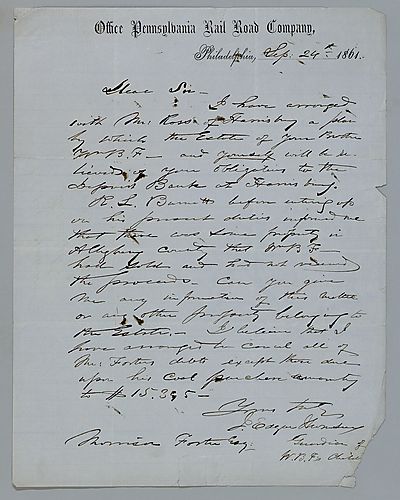 Office Pennsylvania Rail Road Company,
Philadelphia, Sep. 24th 1861.
Dear Sir —
I have arranged
with Mr. Ross of Harrisburg a plan
by which the Estate of your Brother
Wm B. F — and yourself will be re-
lieved of your obligations to the
Deposit Bank at Harrisburg.
R. L. Burnett before entering up
on his present duties informed me
that there was some property in
Allegheny county that W B F
had sold and had not received
the proceeds. Can you give
me any information of this matter
or any other property belonging to
the Estate. — I believe that I
have arranged to cancel all of
Mr. Fosters debts except those due
upon his coal purchase amounting
to $ 15.395 —
Yours truly
J. Edgar Thomson
Morrison Foster Esq. Guardian of
W. B. Fs Children